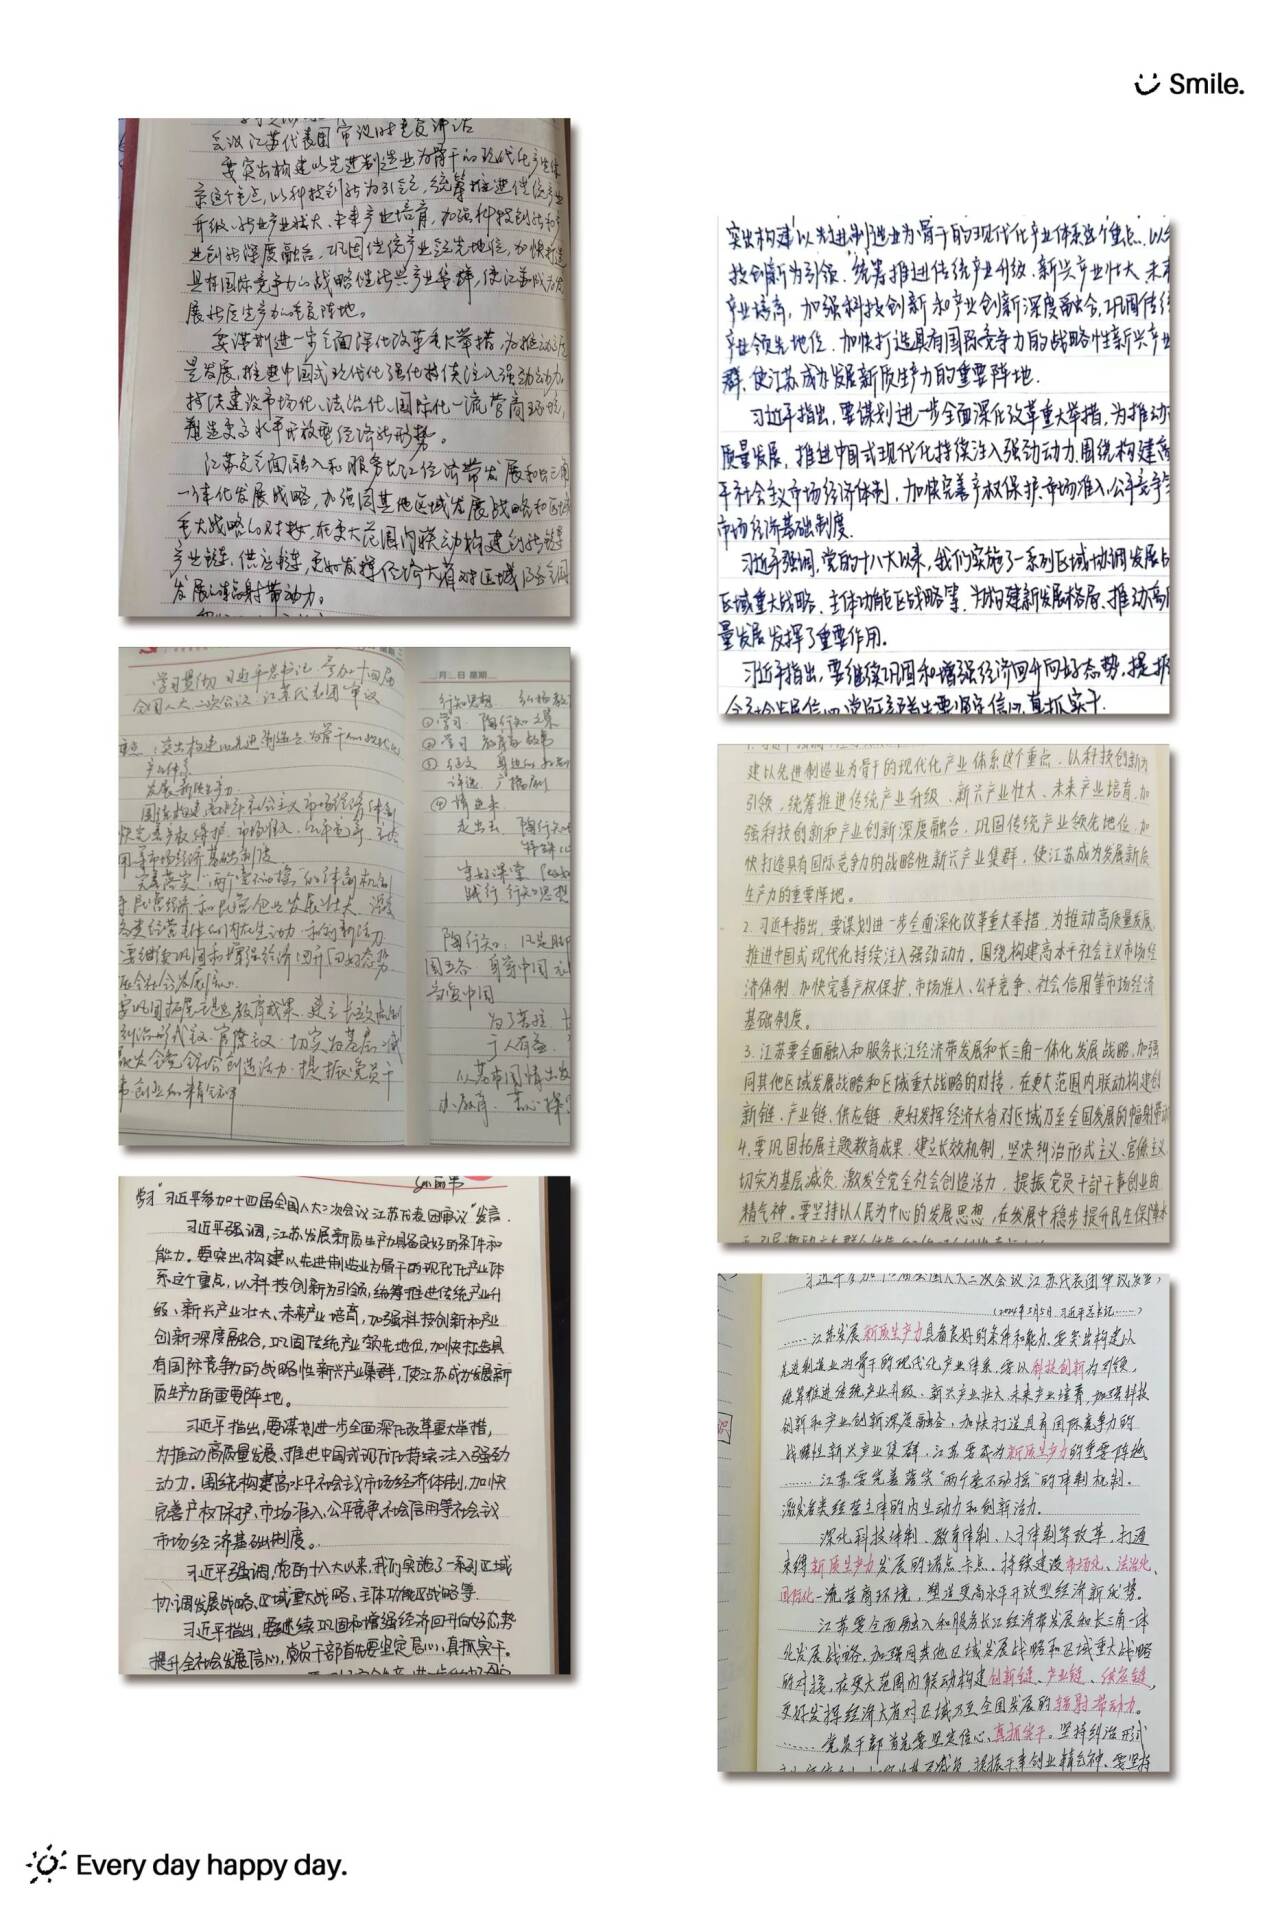 Smile.
会议江苏代表团审议时重要讲话
要突出构建以先进制造业为骨干的现代化产业体
系这个重点,以科技创新为引领,统筹推进传统产业
升级、新兴产业壮大、未来产业培育,加强科技创新和产
业创新深度融合,巩固传统产业领先地位,加快打造
具有国际竞争力的战略性新兴产业集群,使江苏成为发
展新质生产力的重要阵地。
要谋划进一步全面深化改革重大举措,为推动高质
量发展、推进中国式现代化持续注入强劲动力。
持续建设市场化、法治化、国际化一流营商环境,
塑造更高水平开放型经济新形势。
江苏要全面融入和服务长江经济带发展和长三角
一体化发展战略,加强同其他区域发展战略和区域
重大战略的对接,在更大范围内联动构建创新链、
产业链、供应链,更好发挥经济大省对区域乃至全国
发展的辐射带动力。
学习贯彻习近平总书记参加十四届
全国人大二次会议江苏代表团审议
重点:突出构建以先进制造业为骨干的现代化
产业体系
发展新质生产力
围绕构建高水平社会主义市场经济体制
快完善产权保护、市场准入、公平竞争、社会
用等市场经济基础制度
完善落实"两个毫不动摇"的体制机制
民营经济和民营企业发展壮大 激发
各类经营主体的内在生动力和创新活力
要继续巩固和增强经济回升向好态势
振全社会发展信心
要巩固拓展主题教育成果,建立长效机制
纠治形式主义、官僚主义,切实为基层减
激发全党全社会创造活力,提振党员干
事创业的精气神
月 日 星期
行知思想
①学习 陶行知文集
②学习 教育家故事
③征文 身边的
评选 广播剧
④请进来
走出去 陶行知
上好课堂
践行行知思想
陶行知:
学习"习近平参加十四届全国人大二次会议江苏代表团审议"发言.
习近平强调,江苏发展新质生产力具备良好的条件和
能力。要突出构建以先进制造业为骨干的现代化产业体
系这个重点,以科技创新为引领,统筹推进传统产业升
级、新兴产业壮大、未来产业培育,加强科技创新和产业
创新深度融合,巩固传统产业领先地位,加快打造具
有国际竞争力的战略性新兴产业集群,使江苏成为发展新
质生产力的重要阵地。
习近平指出,要谋划进一步全面深化改革重大举措,
为推动高质量发展、推进中国式现代化持续注入强劲
动力。围绕构建高水平社会主义市场经济体制,加快
完善产权保护、市场准入、公平竞争、社会信用等社会议
市场经济基础制度。
习近平强调,党的十八大以来,我们实施了一系列区域
协调发展战略、区域重大战略、主体功能区战略等.
习近平指出,要继续巩固和增强经济回升向好态势
提升全社会发展信心,党员干部首先要坚定信心、真抓实干。
突出构建以先进制造业为骨干的现代化产业体系这个重点,以
技创新为引领,统筹推进传统产业升级、新兴产业壮大、未来
产业培育,加强科技创新和产业创新深度融合,巩固传统
产业领先地位,加快打造具有国际竞争力的战略性新兴产业
群,使江苏成为发展新质生产力的重要阵地.
习近平指出,要谋划进一步全面深化改革重大举措,为推动
质量发展,推进中国式现代化持续注入强劲动力.围绕构建高
平社会主义市场经济体制,加快完善产权保护、市场准入、公平竞争等
市场经济基础制度.
习近平强调,党的十八大以来,我们实施了一系列区域协调发展战
区域重大战略、主体功能区战略等,为构建新发展格局、推动高
量发展发挥了重要作用.
习近平指出,要继续巩固和增强经济回升向好态势,提振
全社会发展信心,党员干部首先要坚定信心、真抓实干.
建以先进制造业为骨干的现代化产业体系这个重点,以科技创新为
引领,统筹推进传统产业升级、新兴产业壮大、未来产业培育,加
强科技创新和产业创新深度融合,巩固传统产业领先地位,加
快打造具有国际竞争力的战略性新兴产业集群,使江苏成为发展新质
生产力的重要阵地。
2.习近平指出,要谋划进一步全面深化改革重大举措,为推动高质量发展、
推进中国式现代化持续注入强劲动力。围绕构建高水平社会主义市场经
济体制,加快完善产权保护、市场准入、公平竞争、社会信用等市场经济
基础制度。
3.江苏要全面融入和服务长江经济带发展和长三角一体化发展战略,加强
同其他区域发展战略和区域重大战略的对接,在更大范围内联动构建创
新链、产业链、供应链,更好发挥经济大省对区域乃至全国发展的辐射带动
4.要巩固拓展主题教育成果,建立长效机制,坚决纠治形式主义、官僚主义,
切实为基层减负,激发全党全社会创造活力,提振党员干部干事创业的
精气神。要坚持以人民为中心的发展思想,在发展中稳步提升民生保障水
习近平参加十四届全国人大二次会议江苏代表团审议发言,
(2024年3月5日,习近平总书记……)
……江苏发展新质生产力具备良好的条件和能力.要突出构建以
先进制造业为骨干的现代化产业体系,要以科技创新为引领,
统筹推进传统产业升级、新兴产业壮大、未来产业培育,加强科技
创新和产业创新深度融合,加快打造具有国际竞争力的
战略性新兴产业集群,江苏要成为新质生产力的重要阵地.
……江苏要完善落实"两个毫不动摇"的体制机制.
激发各类经营主体的内生动力和创新活力.
深化科技体制、教育体制、人才体制等改革,打通
束缚新质生产力发展的堵点卡点.持续建设市场化、法治化、
国际化一流营商环境,塑造更高水平开放型经济新优势.
江苏要全面融入和服务长江经济带发展和长三角一体
化发展战略,加强同其他区域发展战略和区域重大战略
的对接,在更大范围内联动构建创新链、产业链、供应链,
更好发挥经济大省对区域乃至全国发展的辐射带动力。
……党员干部首先要坚定信心、真抓实干。坚持纠治形式
Every day happy day.